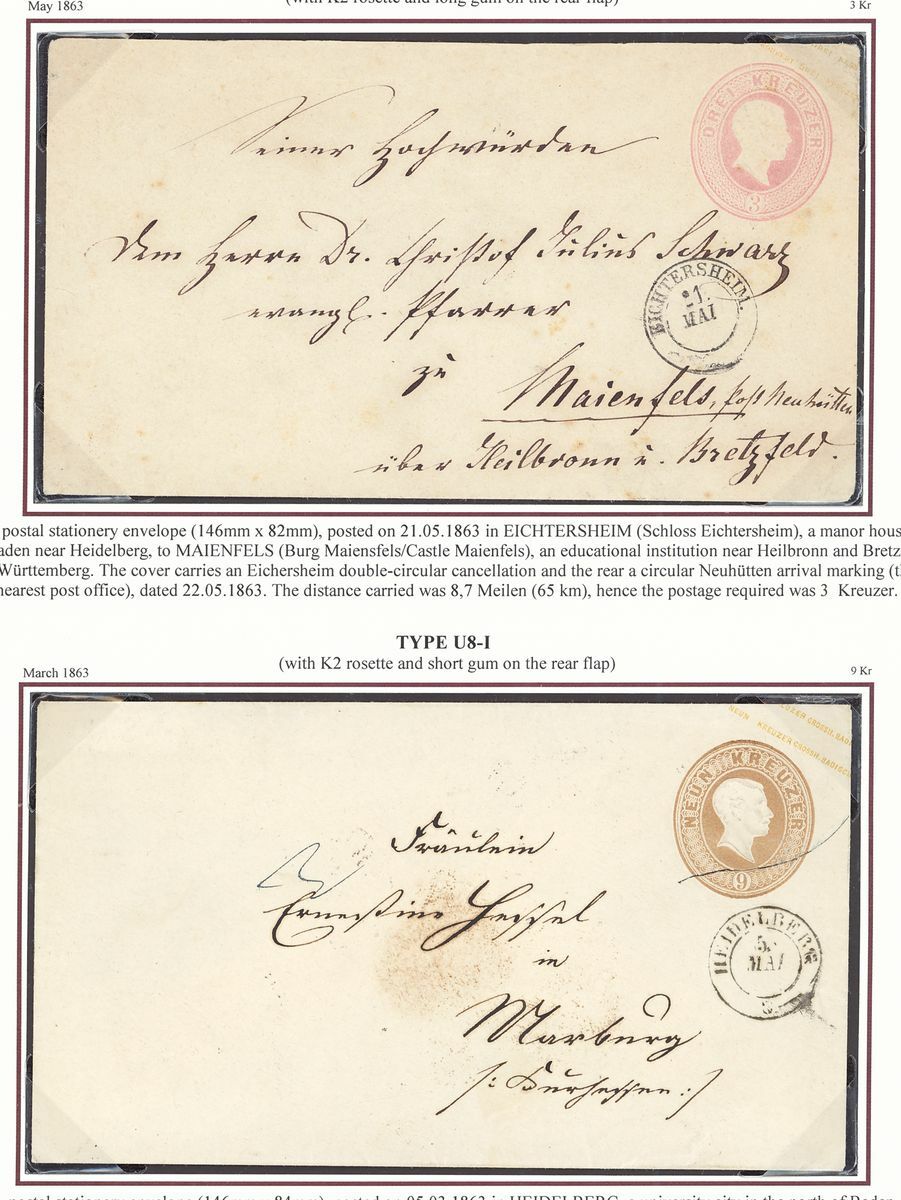 (with K2 rosette and long gum on the rear flap)
May 1863
3 Kr
DREI KREUZER
3
Seiner Hochwürden
Dem Herrn Dr. Christof Julius Schwarz
evangl. Pfarrer
zu
Maienfels, Post Neuhütten
über Heilbronn u. Bretzfeld.
EICHTERSHEIM.
21.
MAI
postal stationery envelope (146mm x 82mm), posted on 21.05.1863 in EICHTERSHEIM (Schloss Eichtersheim), a manor hous
aden near Heidelberg, to MAIENFELS (Burg Maiensfels/Castle Maienfels), an educational institution near Heilbronn and Bretz
Württemberg. The cover carries an Eichersheim double-circular cancellation and the rear a circular Neuhütten arrival marking (t
nearest post office), dated 22.05.1863. The distance carried was 8,7 Meilen (65 km), hence the postage required was 3 Kreuzer.
TYPE U8-I
(with K2 rosette and short gum on the rear flap)
March 1863
9 Kr
UZER GROSSH. BADI
NEUN KREUZER GROSSH. BADISC
NEUN KREUZER
9
Fräulein
Ernestine Hessel
in
Marburg
/: Kurhessen :/
HEIDELBERG
5.
MAI
postal stationery envelope (146mm x 84mm), posted on 05.03.1863 in HEIDELBERG, a university city in the north of Baden